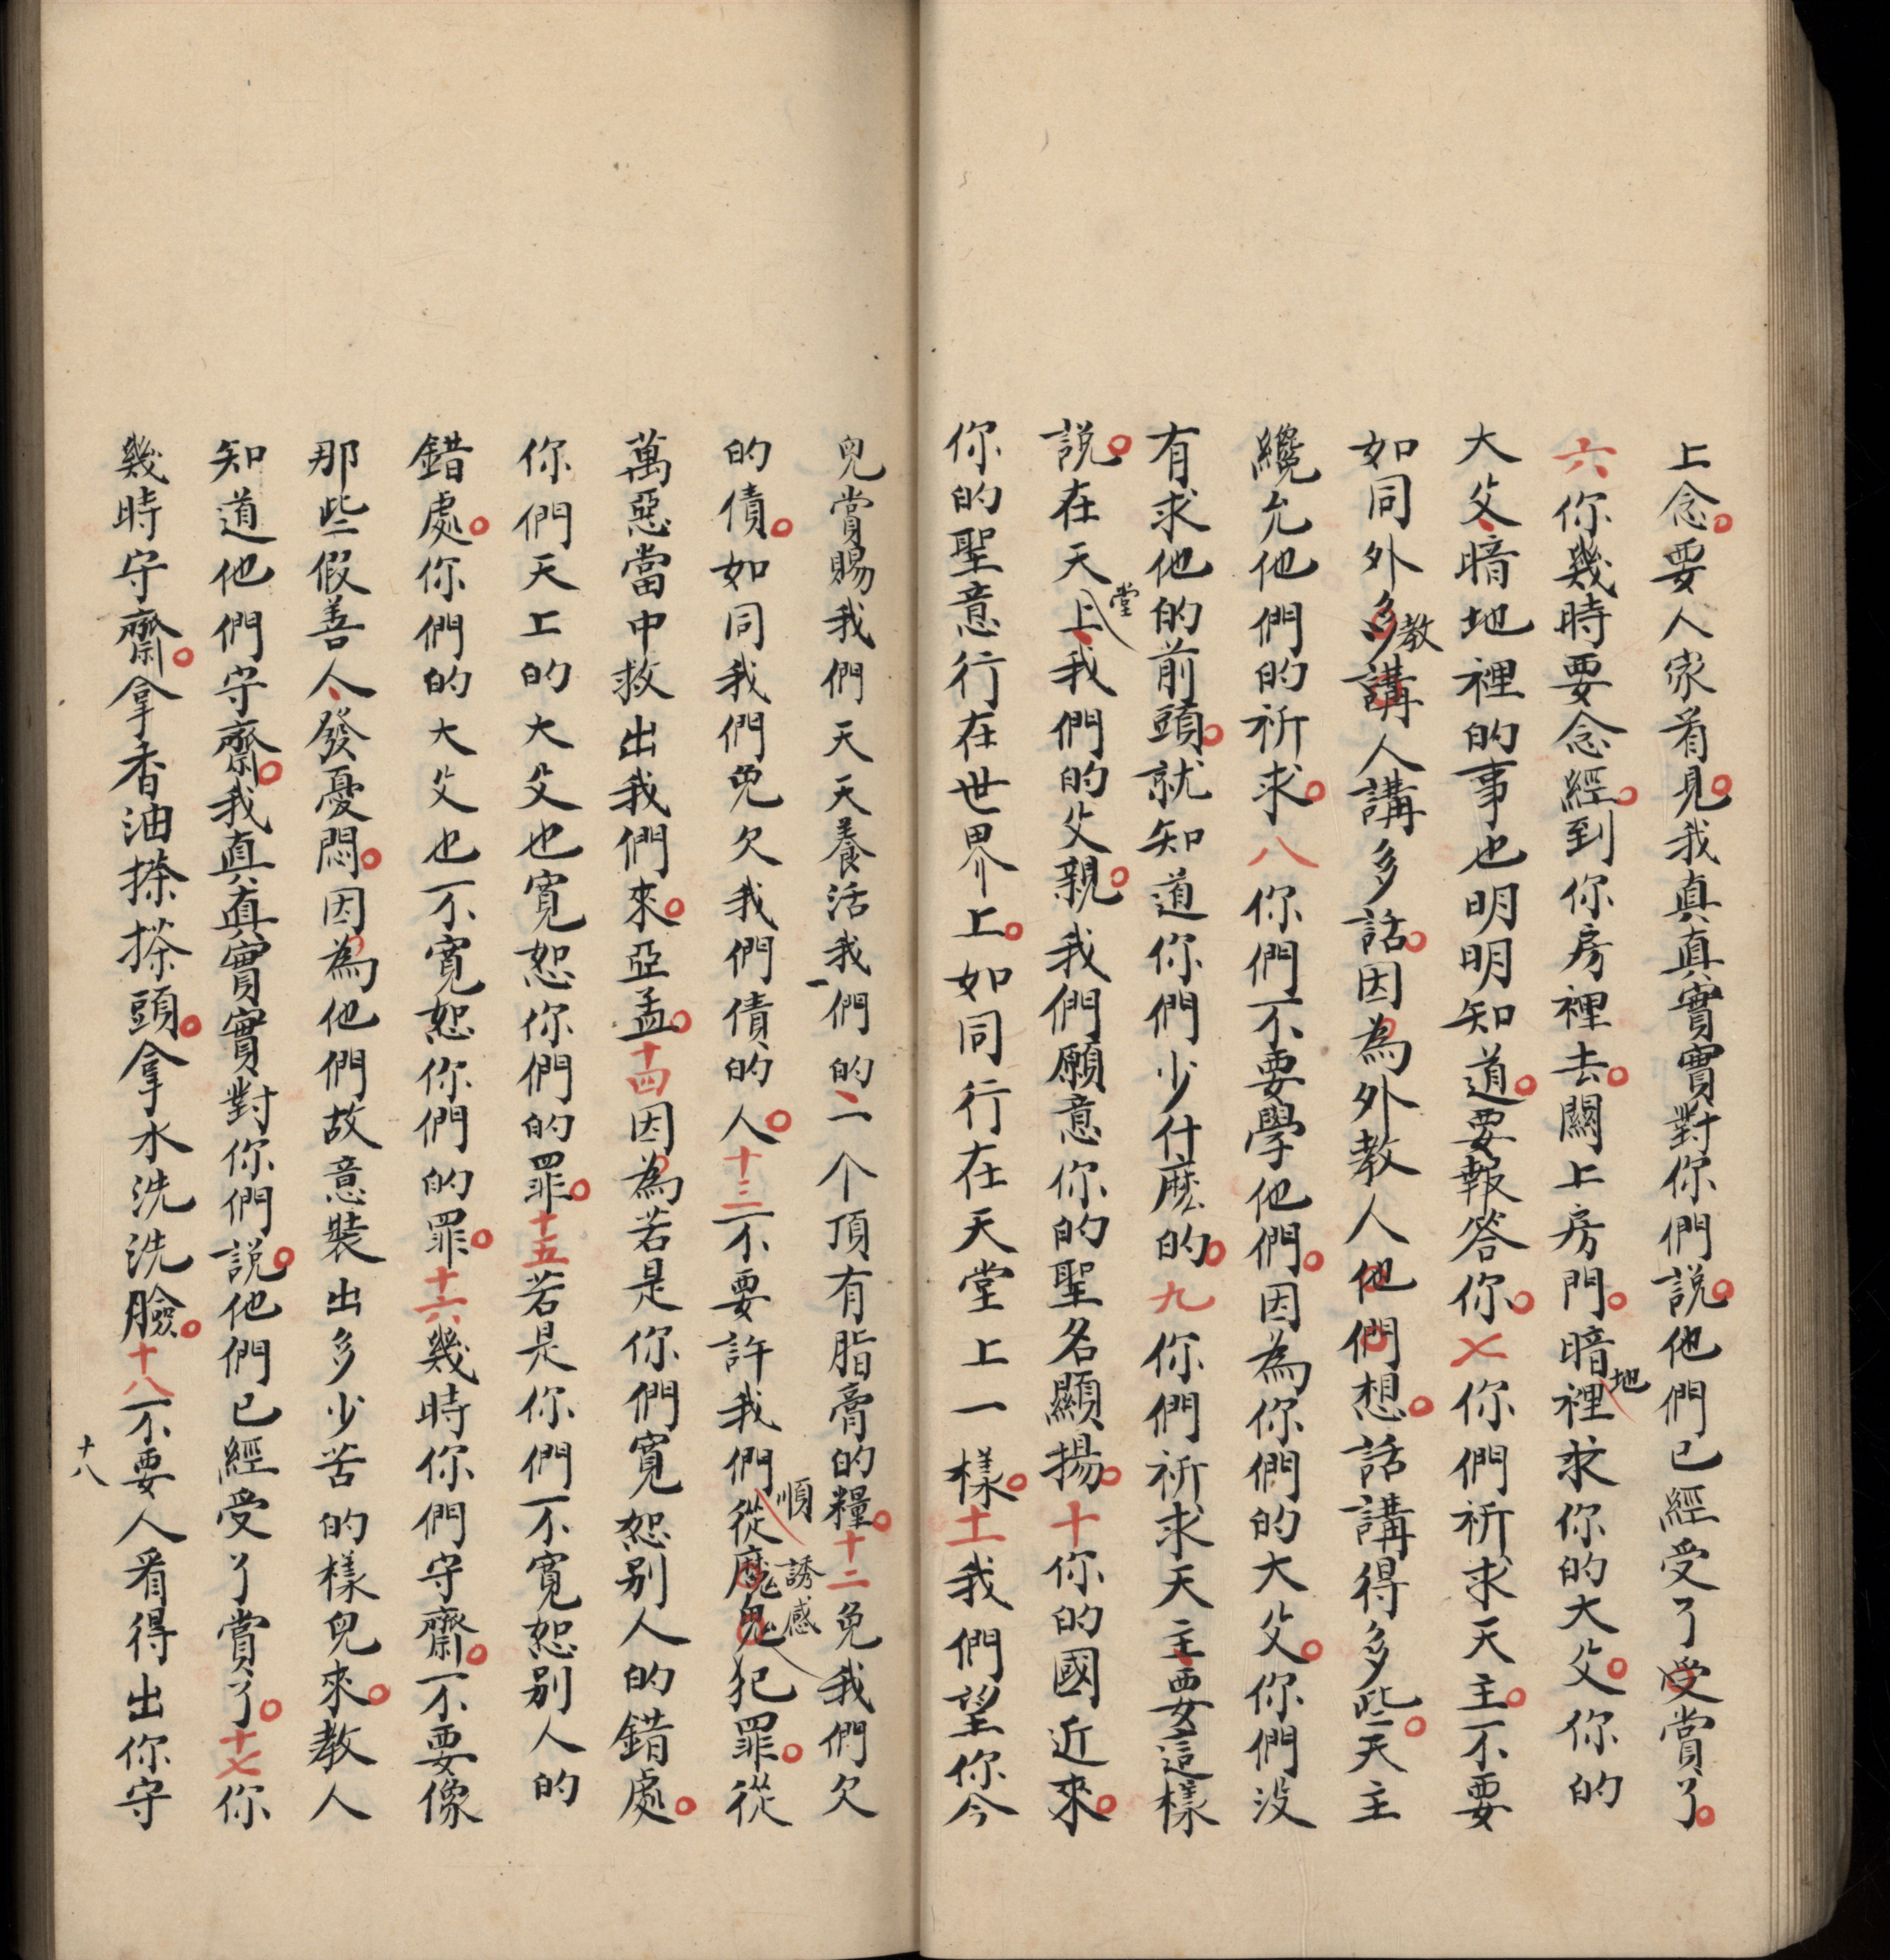 上念。要人家看見。我真真實實對你們說。他們已經受了受賞了。
六你幾時要念經。到你房裡去。關上房門。暗地裡求你的大父。你的
大父、暗地裡的事也明明知道。要報答你。七你們祈求天主。不要
如同外教多講人講多話。因為外教人他們想。話講得多些。天主
纔允他們的祈求。八你們不要學他們。因為你們的大父。你們没
有求他的前頭。就知道你們少什麽的。九你們祈求天主、要這樣
說。在天堂上、我們的父親。我們願意你的聖名顯揚。十你的國近來。
你的聖意行在世界上。如同行在天堂上一樣。十一我們望你今
兒賞賜我們天天養活我們的、一个頂有脂膏的糧。十二免我們欠
的債。如同我們免欠我們債的人。十三不要許我們順從魔鬼誘感犯罪。從
萬惡當中救出我們來。亞孟。十四因為若是你們寬恕别人的錯處。
你們天上的大父也寬恕你們的罪。十五若是你們不寬恕别人的
錯處。你們的大父也不寬恕你們的罪。十六幾時你們守齋。不要像
那些假善人、發憂悶。因為他們故意裝出多少苦的樣兒來。教人
知道他們守齋。我真真實實對你們說。他們已經受了賞了。十七你
幾時守齋。拿香油搽搽頭。拿水洗洗臉。十八不要人看得出你守
十八